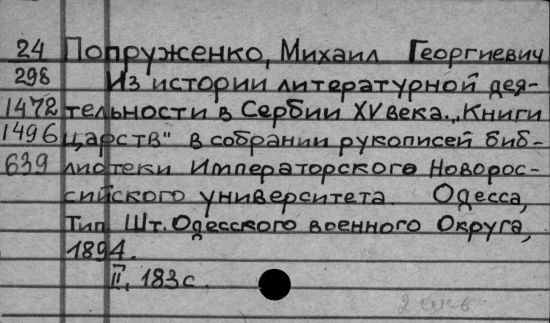 24 Попруженко, Михаил Георгиевич
298 Из истории литературной дея-
1472 тельности в Сербии XV века. „Книги
1496 царств" в собрании рукописей биб-
639 лиотеки Императорского Новорос-
сийского университета. Одесса,
Тип. Шт. Одесского военного Округа,
1894.
II, 183 с.